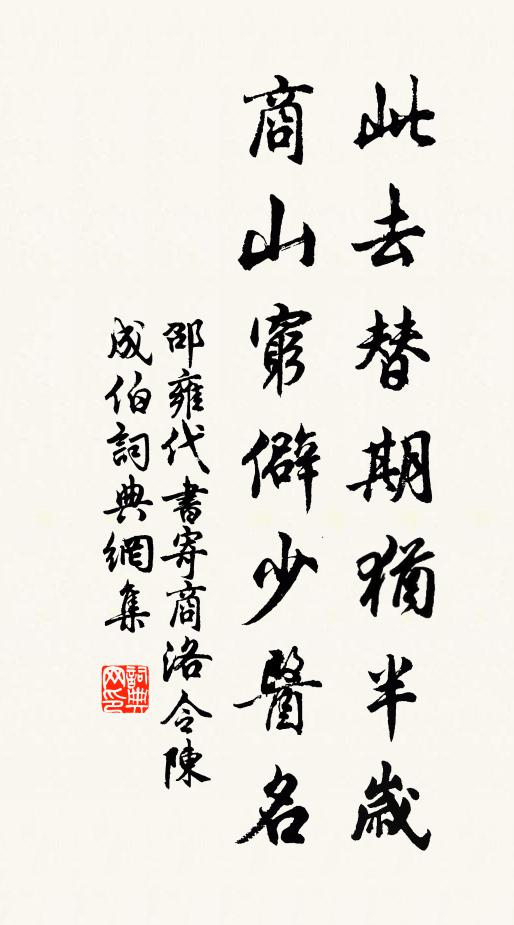 此去替期猶半歲
商山窮僻少醫名
邵雍代書寄商洛令陳
成伯詞典網集
詞典網印